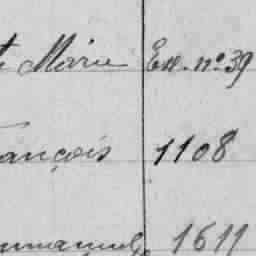 Marie Ex. nº 39
ançois 1108
mmanuel 1611